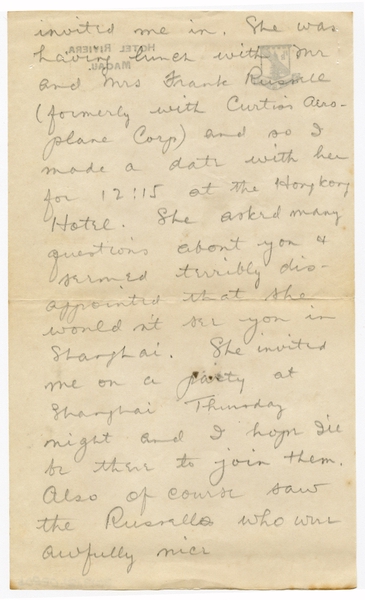 invited me in. She was
having lunch with Mr
and Mrs Frank Russell
(formerly with Curtiss Aero-
plane Corp) and so I
made a date with her
for 12:15 at the Hongkong
Hotel. She asked many
questions about you &
seemed terribly dis-
appointed that she
wouldn't see you in
Shanghai. She invited
me on a party at
Shanghai Thursday
night and I hope I'll
be there to join them.
Also of course saw
the Russells who were
awfully nice
HOTEL RIVIERA,
MACAU.